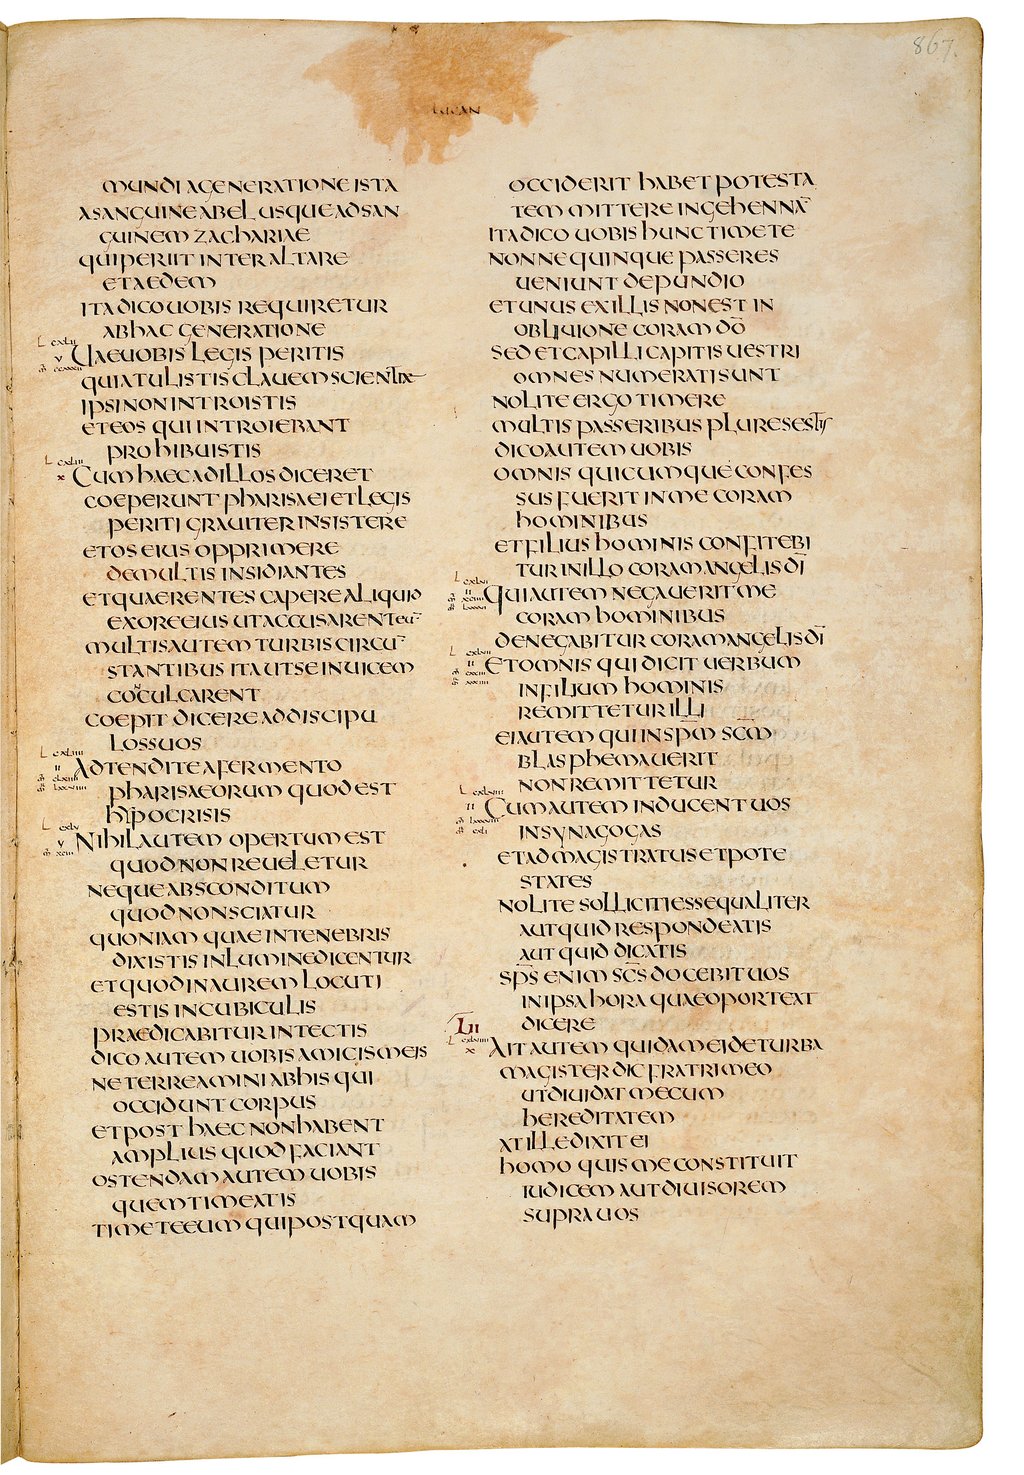 867.
LUCAN
MUNDI A GENERATIONE ISTA
A SANGUINE ABEL USQUE AD SAN
GUINEM ZACHARIAE
QUI PERIIT INTER ALTARE
ET AEDEM
ITA DICO UOBIS REQUIRETUR
AB HAC GENERATIONE
L CXLII
V UAE UOBIS LEGIS PERITIS
QUIA TULISTIS CLAUEM SCIENTIAE
IPSI NON INTROISTIS
ET EOS QUI INTROIEBANT
PROHIBUISTIS
L CXLIII
X CUM HAEC AD ILLOS DICERET
COEPERUNT PHARISAEI ET LEGIS
PERITI GRAUITER INSISTERE
ET OS EIUS OPPRIMERE
DE MULTIS INSIDIANTES
ET QUAERENTES CAPERE ALIQUID
EX ORE EIUS UT ACCUSARENT EU̅
MULTIS AUTEM TURBIS CIRCU̅
STANTIBUS ITA UT SE INUICEM
CONCULCARENT
COEPIT DICERE AD DISCIPU
LOS SUOS
L CXLIIII
II ADTENDITE A FERMENTO
PHARISAEORUM QUOD EST
HYPOCRISIS
L CXLV
V NIHIL AUTEM OPERTUM EST
QUOD NON REUELETUR
NEQUE ABSCONDITUM
QUOD NON SCIATUR
QUONIAM QUAE IN TENEBRIS
DIXISTIS IN LUMINE DICENTUR
ET QUOD IN AUREM LOCUTI
ESTIS IN CUBICULIS
PRAEDICABITUR IN TECTIS
DICO AUTEM UOBIS AMICIS MEIS
NE TERREAMINI AB HIS QUI
OCCIDUNT CORPUS
ET POST HAEC NON HABENT
AMPLIUS QUOD FACIANT
OSTENDAM AUTEM UOBIS
QUEM TIMEATIS
TIMETE EUM QUI POSTQUAM
OCCIDERIT HABET POTESTA
TEM MITTERE IN GEHENNA̅
ITA DICO UOBIS HUNC TIMETE
NONNE QUINQUE PASSERES
UENIUNT DEPUNDIO
ET UNUS EX ILLIS NON EST IN
OBLIUIONE CORAM D̅O̅
SED ET CAPILLI CAPITIS UESTRI
OMNES NUMERATI SUNT
NOLITE ERGO TIMERE
MULTIS PASSERIBUS PLURES ESTIS
DICO AUTEM UOBIS
OMNIS QUICUMQUE CONFES
SUS FUERIT IN ME CORAM
HOMINIBUS
ET FILIUS HOMINIS CONFITEBI
TUR IN ILLO CORAM ANGELIS D̅I̅
L CXLVI
II QUI AUTEM NEGAUERIT ME
CORAM HOMINIBUS
DENEGABITUR CORAM ANGELIS D̅I̅
L CXLVII
II ET OMNIS QUI DICIT UERBUM
IN FILIUM HOMINIS
REMITTETUR ILLI
EI AUTEM QUI IN SP̅M SC̅M
BLASPHEMAUERIT
NON REMITTETUR
L CXLVIII
II CUM AUTEM INDUCENT UOS
IN SYNAGOGAS
ET AD MAGISTRATUS ET POTE
STATES
NOLITE SOLLICITI ESSE QUALITER
AUT QUID RESPONDEATIS
AUT QUID DICATIS
SP̅S ENIM SC̅S DOCEBIT UOS
IN IPSA HORA QUAE OPORTEAT
DICERE
LII
L CXLVIIII
X AIT AUTEM QUIDAM EI DE TURBA
MAGISTER DIC FRATRI MEO
UT DIUIDAT MECUM
HEREDITATEM
AT ILLE DIXIT EI
HOMO QUIS ME CONSTITUIT
IUDICEM AUT DIUISOREM
SUPRA UOS